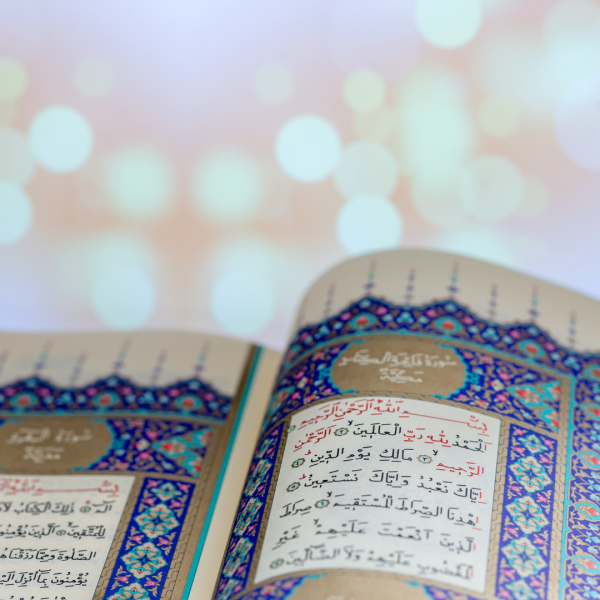 سورة فاتحة الكتاب
مكية
بِسْمِ اللّٰهِ الرَّحْمٰنِ الرَّحِيمِ
اَلْحَمْدُ لِلّٰهِ رَبِّ الْعَالَمِينَ ۙ الرَّحْمٰنِ
الرَّحِيمِ ۙ مَالِكِ يَوْمِ الدِّينِ ۜ
اِيَّاكَ نَعْبُدُ وَاِيَّاكَ نَسْتَعِينُ ۜ
اِهْدِنَا الصِّرَاطَ الْمُسْتَقِيمَ ۙ صِرَاطَ
الَّذِينَ اَنْعَمْتَ عَلَيْهِمْ ۙ غَيْرِ
الْمَغْضُوبِ عَلَيْهِمْ وَلَا الضَّالِّينَ
سورة البقرة
بِسْمِ اللّٰهِ
الٓمٓ ذٰلِكَ الْكِتَابُ
لِلْمُتَّقِينَ اَلَّذِينَ يُؤْمِنُونَ
الصَّلٰوةَ وَمِمَّا رَزَقْنَاهُمْ
يُؤْمِنُونَ بِمَا اُنْزِلَ اِلَيْكَ